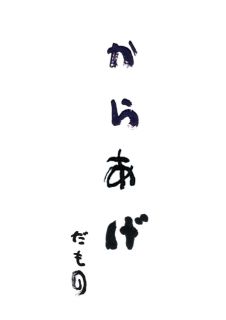 からあげ
だもの